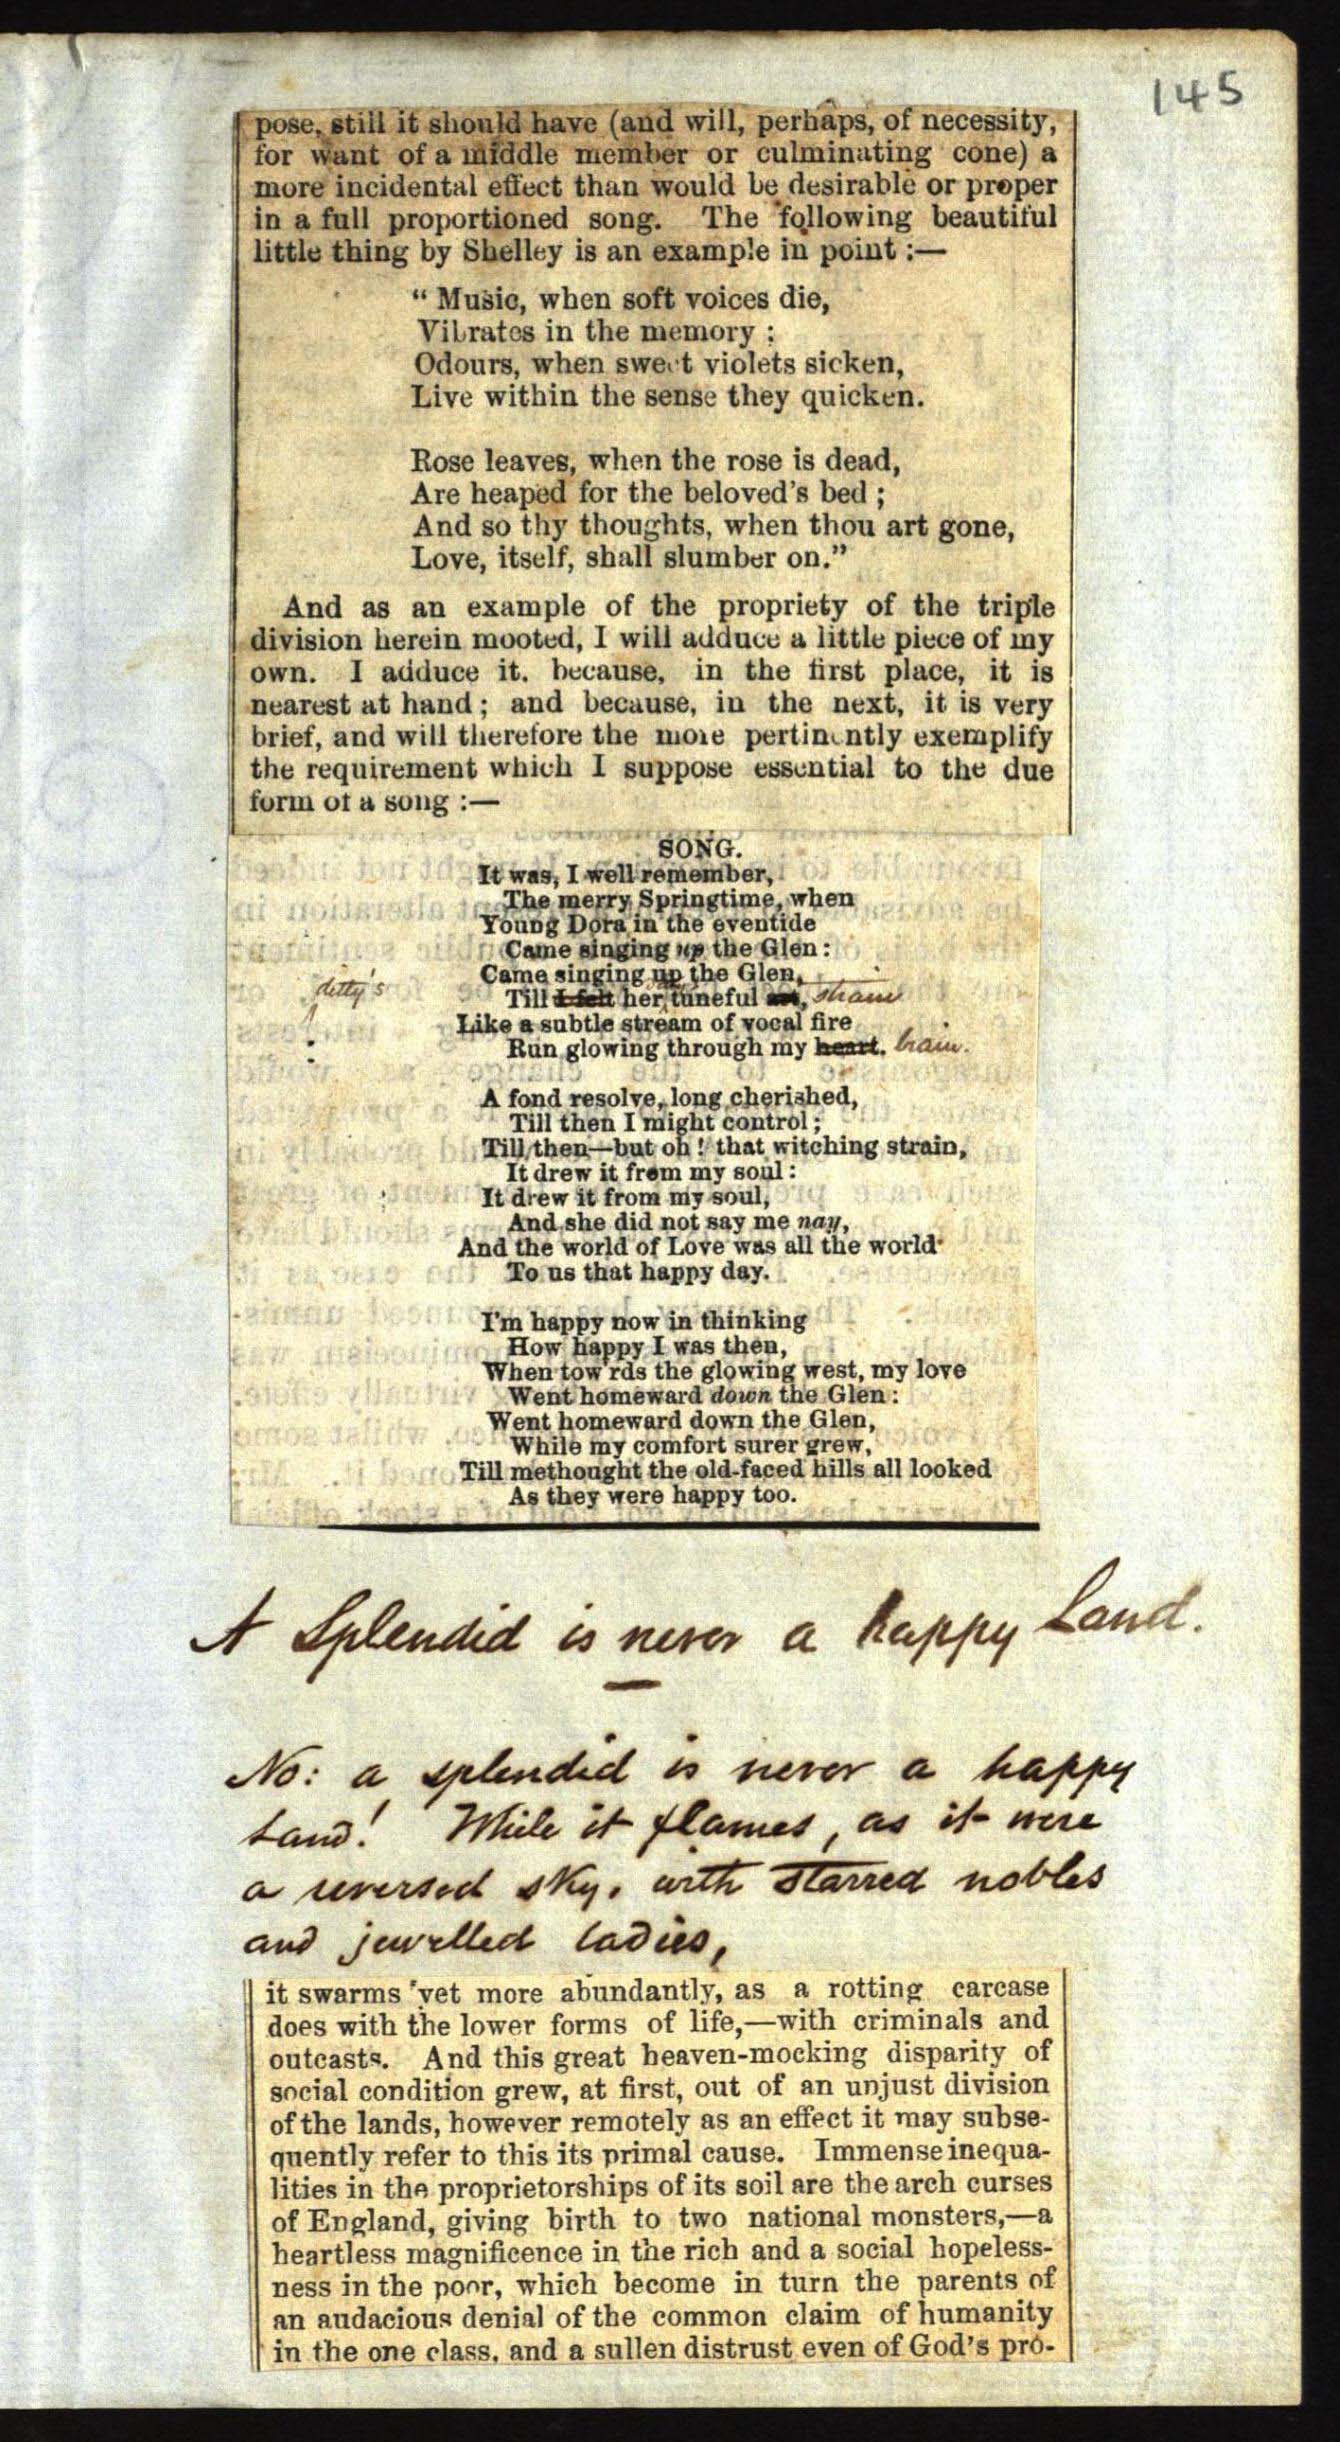 145
pose, still it should have (and will, perhaps, of necessity,
for want of a middle member or culminating cone) a
more incidental effect than would be desirable or proper
in a full proportioned song. The following beautiful
little thing by Shelley is an example in point :—
" Music, when soft voices die,
Vibrates in the memory ;
Odours, when sweet violets sicken,
Live within the sense they quicken.
Rose leaves, when the rose is dead,
Are heaped for the beloved's bed ;
And so thy thoughts, when thou art gone,
Love, itself, shall slumber on."
And as an example of the propriety of the triple
division herein mooted, I will adduce a little piece of my
own. I adduce it, because, in the first place, it is
nearest at hand ; and because, in the next, it is very
brief, and will therefore the more pertinently exemplify
the requirement which I suppose essential to the due
form of a song :—
SONG.
It was, I well remember,
The merry Springtime, when
Young Dora in the eventide
Came singing up the Glen :
Came singing up the Glen,
ditty's
Till I felt her tuneful art, strain
Like a subtle stream of vocal fire
Run glowing through my heart. brain.
A fond resolve, long cherished,
Till then I might control ;
Till then—but oh ! that witching strain,
It drew it from my soul :
It drew it from my soul,
And she did not say me nay,
And the world of Love was all the world
To us that happy day.
I'm happy now in thinking
How happy I was then,
When tow'rds the glowing west, my love
Went homeward down the Glen :
Went homeward down the Glen,
While my comfort surer grew,
Till methought the old-faced hills all looked
As they were happy too.
A Splendid is never a happy Land.
No: a splendid is never a happy
Land! While it flames, as it were
a reversed sky, with starred nobles
and jewelled ladies,
it swarms yet more abundantly, as a rotting carcase
does with the lower forms of life,—with criminals and
outcasts. And this great heaven-mocking disparity of
social condition grew, at first, out of an unjust division
of the lands, however remotely as an effect it may subse-
quently refer to this its primal cause. Immense inequa-
lities in the proprietorships of its soil are the arch curses
of England, giving birth to two national monsters,—a
heartless magnificence in the rich and a social hopeless-
ness in the poor, which become in turn the parents of
an audacious denial of the common claim of humanity
in the one class, and a sullen distrust even of God's pro-